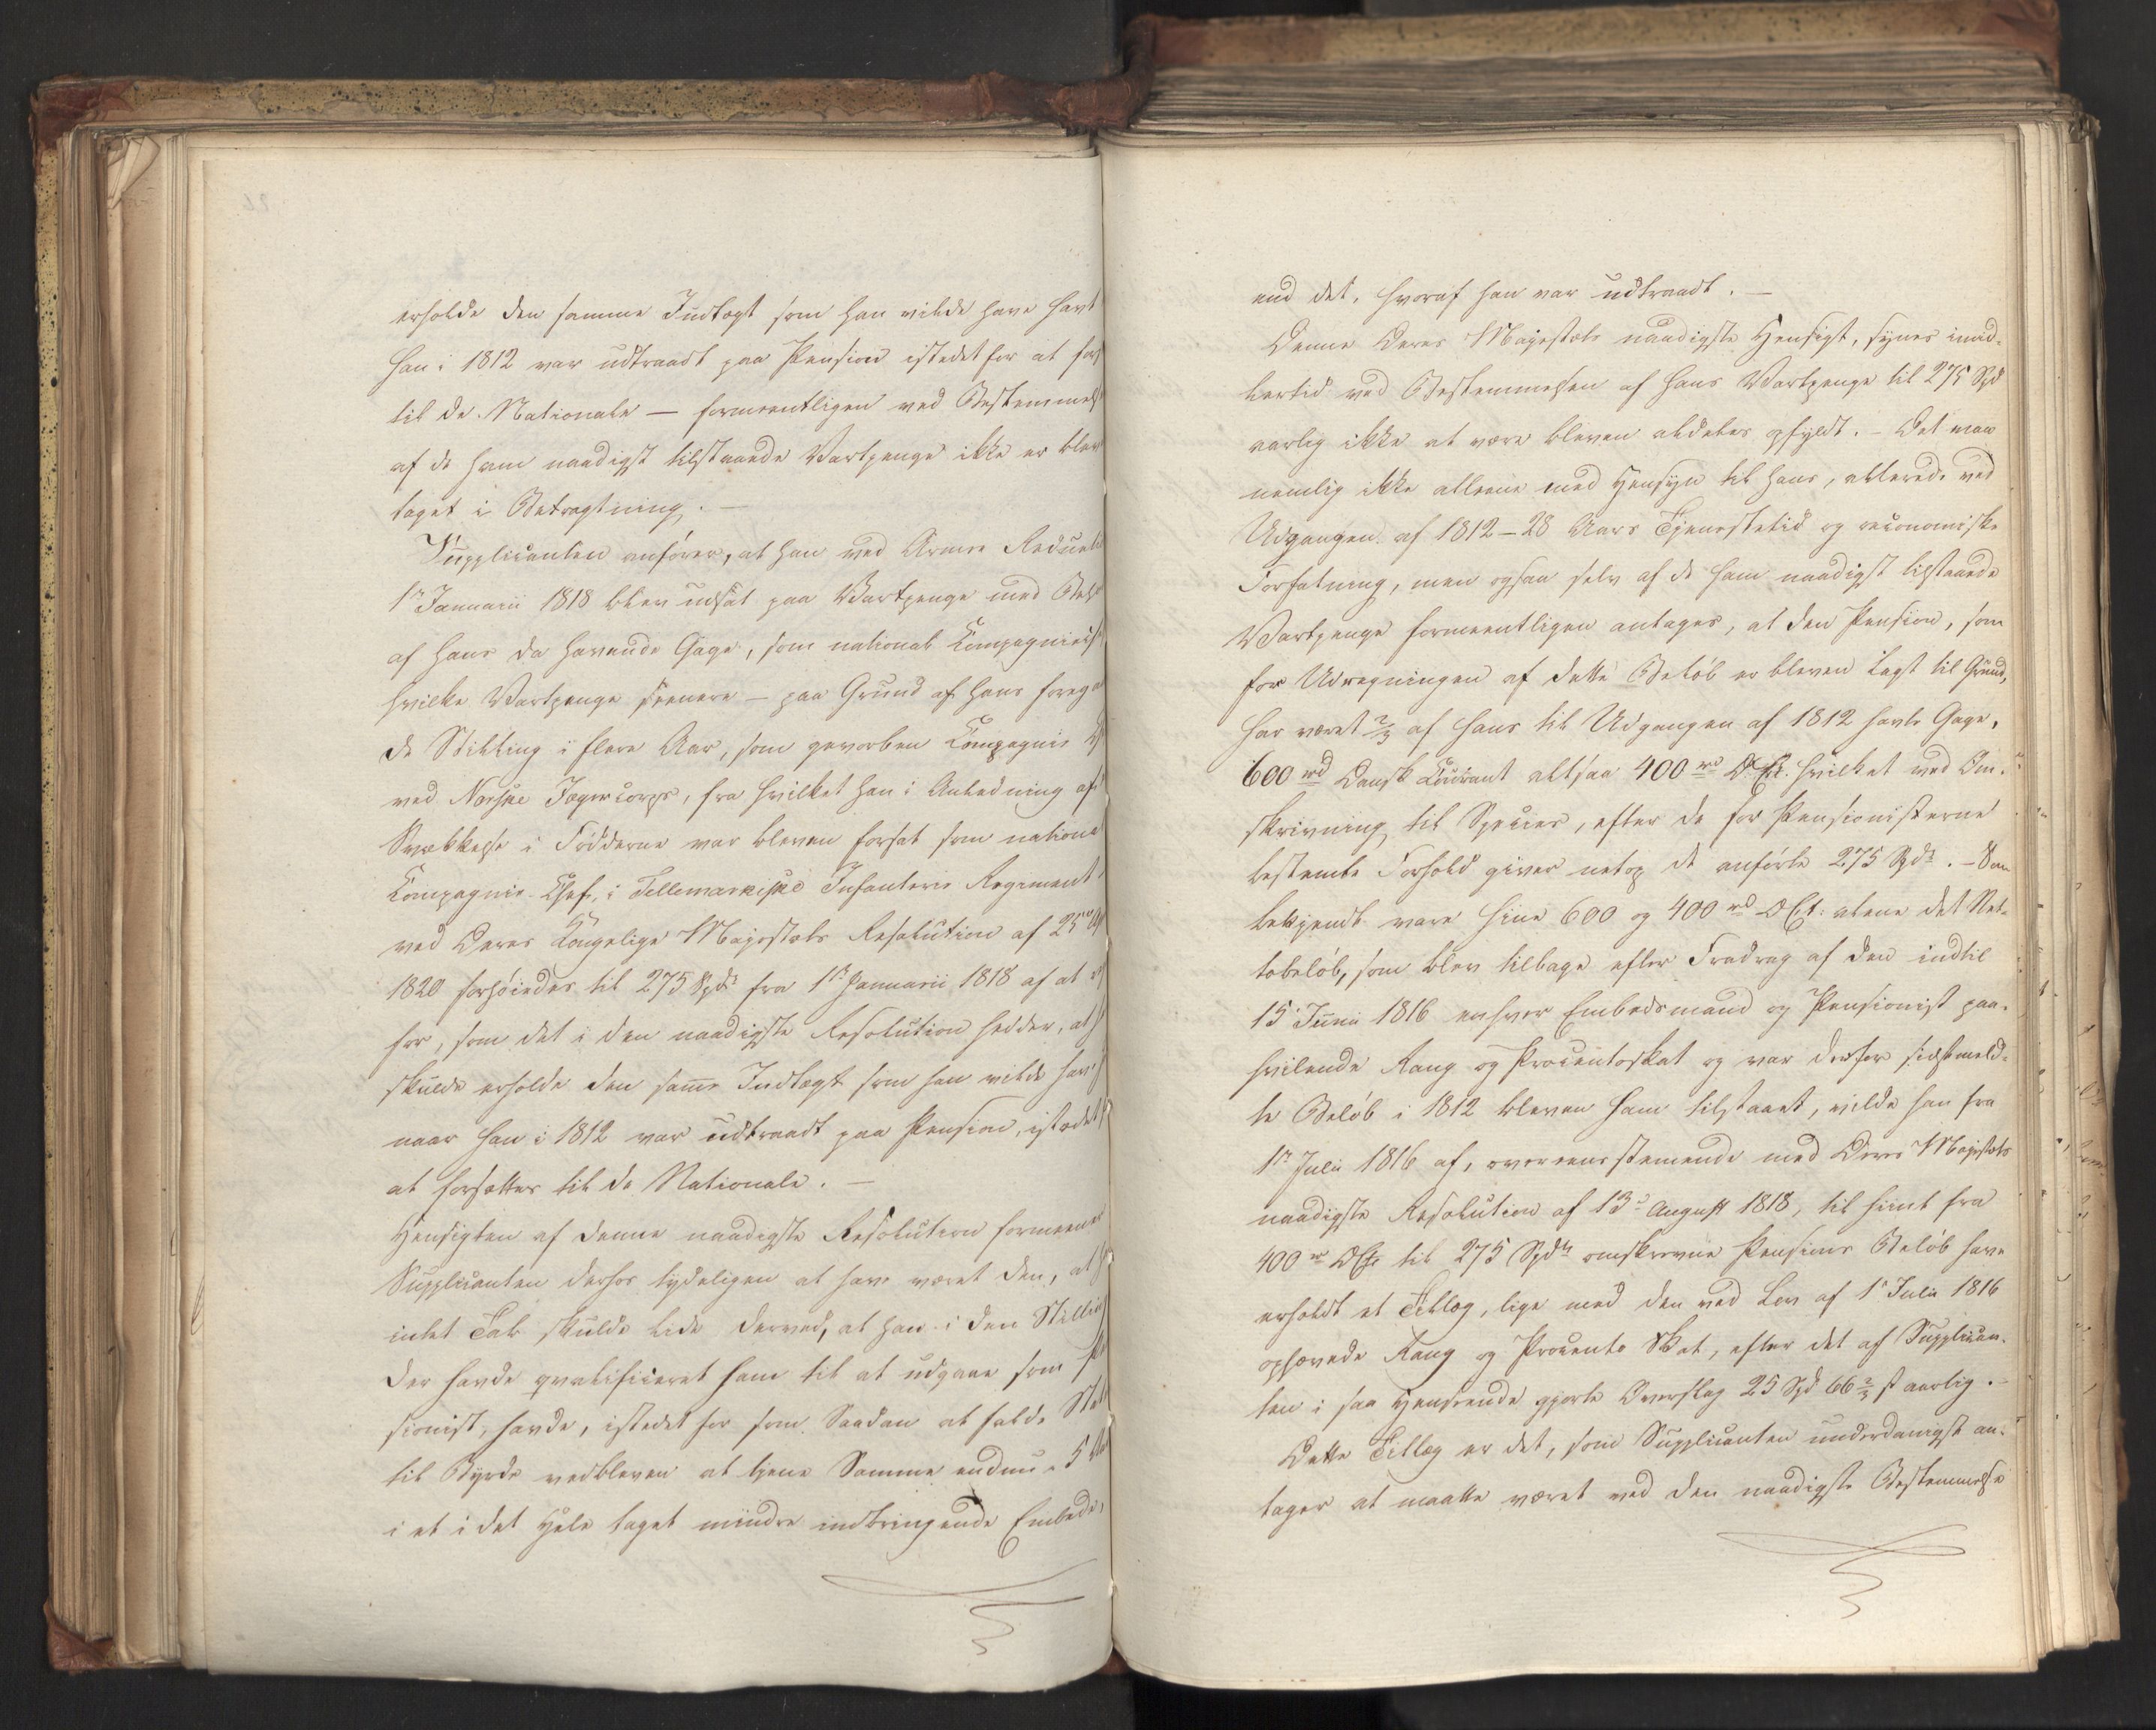 erholde den samme Indtægt som han vilde have havt
han i 1812 var udtraadt paa Pension istedetfor at fors
til de Nationale — formeentligen ved Bestemmels
af de ham naadigst tilstaaede Vartpenge ikke er blev
taget i Betragtning. —
Supplicanten anfører, at han ved Armee Reducti
1ste Januarii 1818 blev udsat paa Vartpenge med
af hans da havende Gage, som national Kompagniechef
hvilke Vartpenge seenere — paa Grund af hans foregaa
de Stilling i flere Aar, som gevorben Kompagnie
ved Norske Jægercorps, fra hvilket han i Anledning af
Svækkelse i Fødderne var bleven forsat som national
Kompagnie Chef, i Tellemarkiske Infanterie Regiment,
ved Deres Kongelige Majestæts Resolution af 25de
1820 forhøiedes til 275 Spdr fra 1ste Januarii 1818 af at
for, som det i den naadigste Resolution hedder, at
skulde erholde den samme Indtægt som han vilde have
naar han i 1812 var udtraadt paa Pension, istedet
at forsættes til de Nationale. —
Hensigten af denne naadigste Resolution formeener
Supplicanten derfor tydeligen at have været den, at
intet Tab skulde lide derved, at han i den Stilling
der havde qvalificeret ham til at udgaae som Pen
sionist, havde, istedet for som Saadan at falde Stat
til Byrde vedbleven at tjene Samme endnu 5 Aar
i et i det Hele taget mindre indbringende Embede,
end det, hvoraf han var udtraadt. —
Denne Deres Majestæts naadigste Hensigt, synes imid-
lertid ved Bestemmelsen af hans Vartpenge til 275 Spd
aarlig ikke at være bleven aldeles opfyldt. — Det maa
nemlig ikke alleene med Hensyn til hans, allerede ved
Udgangen af 1812 — 28 Aars Tjenestetid og oeconomiske
Forfatning, men ogsaa selv af de ham naadigst tilstaaede
Vartpenge formeentligen antages, at den Pension, som
for Udregningen af dette Beløb er bleven lagt til Grund,
har været 2/3 af hans til Udgangen af 1812 havte Gage,
600 rd Dansk Courant altsaa 400 rd D.C. hvilket ved Om-
skrivning til Species, efter de for Pensionisterne
bestemte Forhold giver netop de anførte 275 Spdr. — Som
bekjendt vare hine 600 og 400 rd D.Ct: alene det Net-
tobeløb, som blev tilbage efter Fradrag af den indtil
15 Junii 1816 enhver Embedsmand og Pensionist paa-
hvilende Rang og Procentoskat og var derfor sidstmeld-
te Beløb i 1812 bleven ham tilstaaet, vilde han fra
1ste Julii 1816 af, overeensstemmende med Deres Majestæts
naadigste Resolution af 13de August 1818, til hiint fra
400 rd DC til 275 Spdr omskrevne Pensions Beløb have
erholdt et Tillæg, lige med den ved Lov af 1 Julii 1816
ophævede Rang og Procento Skat, efter det af Supplican-
ten i saa Henseende gjorte Overslag 25 Spd 66 2/3 s aarlig. —
Dette Tillæg er det, som Supplicanten underdanigst an-
tager at maatte været ved den naadigste Bestemmelse